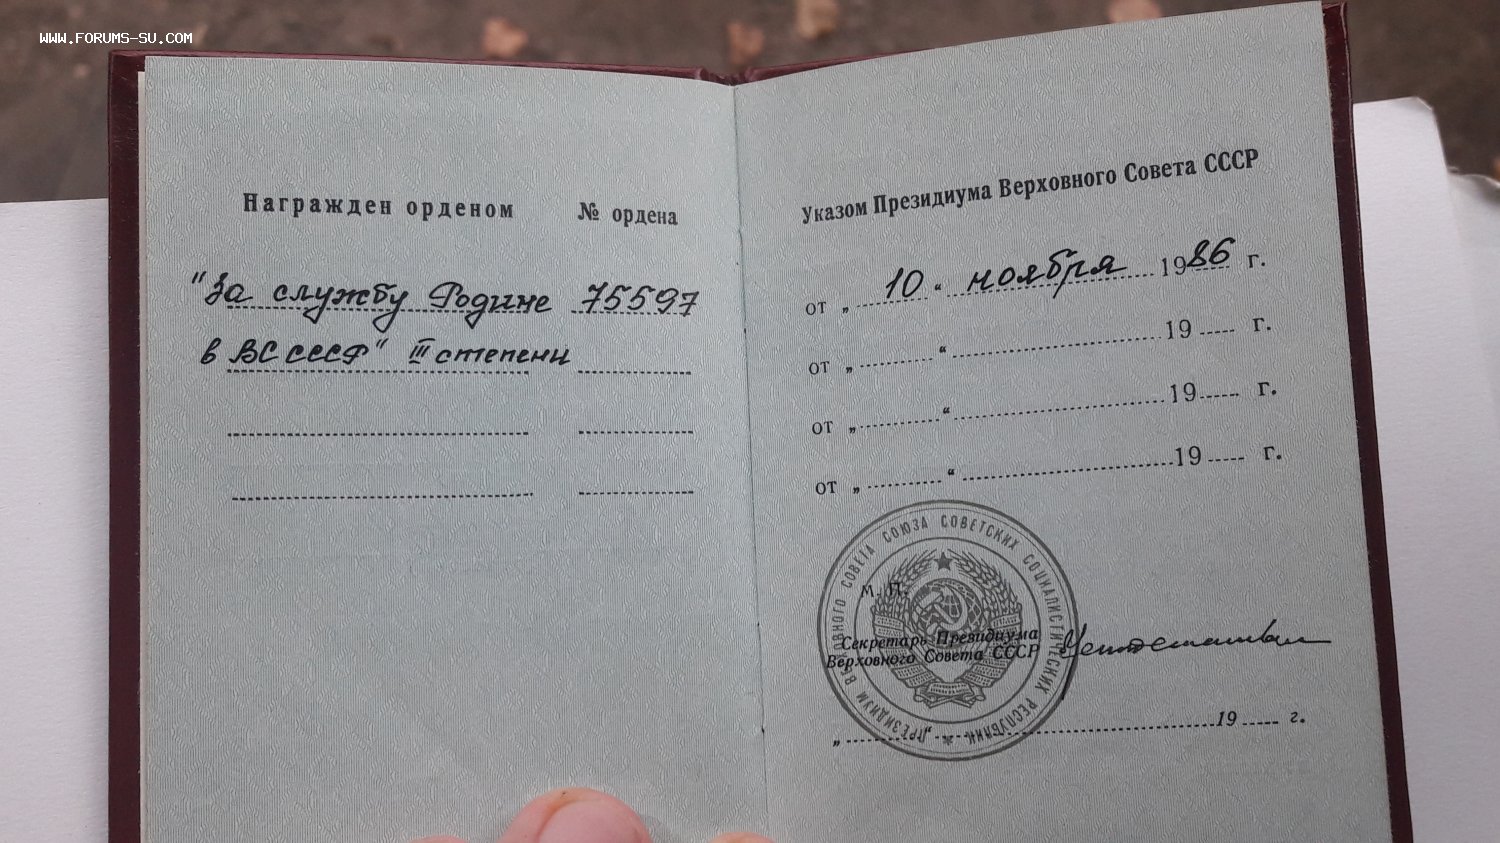 WWW.FORUMS-SU.COM
Награжден орденом № ордена
"За службу Родине 75597
в ВС СССР" III степени
Указом Президиума Верховного Совета СССР
от „ 10 “ ноября 1986 г.
от „ “ 19 г.
от „ “ 19 г.
от „ “ 19 г.
ПРЕЗИДИУМ ВЕРХОВНОГО СОВЕТА СОЮЗА СОВЕТСКИХ СОЦИАЛИСТИЧЕСКИХ РЕСПУБЛИК
М. П.
Секретарь Президиума
Верховного Совета СССР
„ “ 19 г.